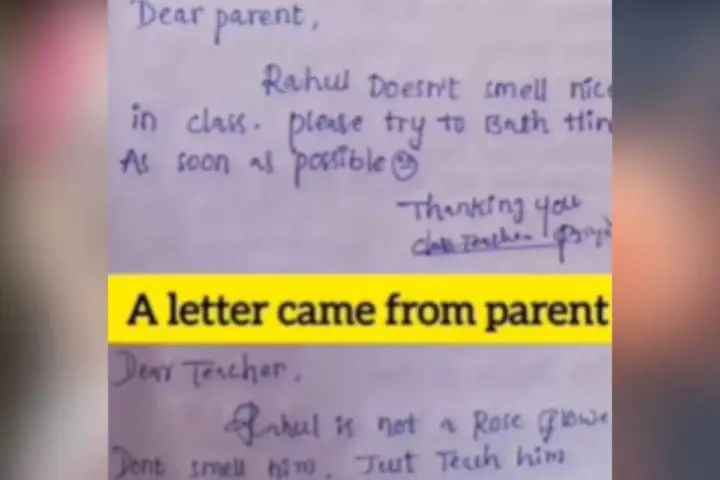 Dear parent,
Rahul Doesn't smell nice
in class. please try to Bath Him
As soon as possible
Thanking you
Class Teacher
A letter came from parent
Dear Teacher,
Rahul is not a Rose Flowe
Dont smell him. Just Teach him